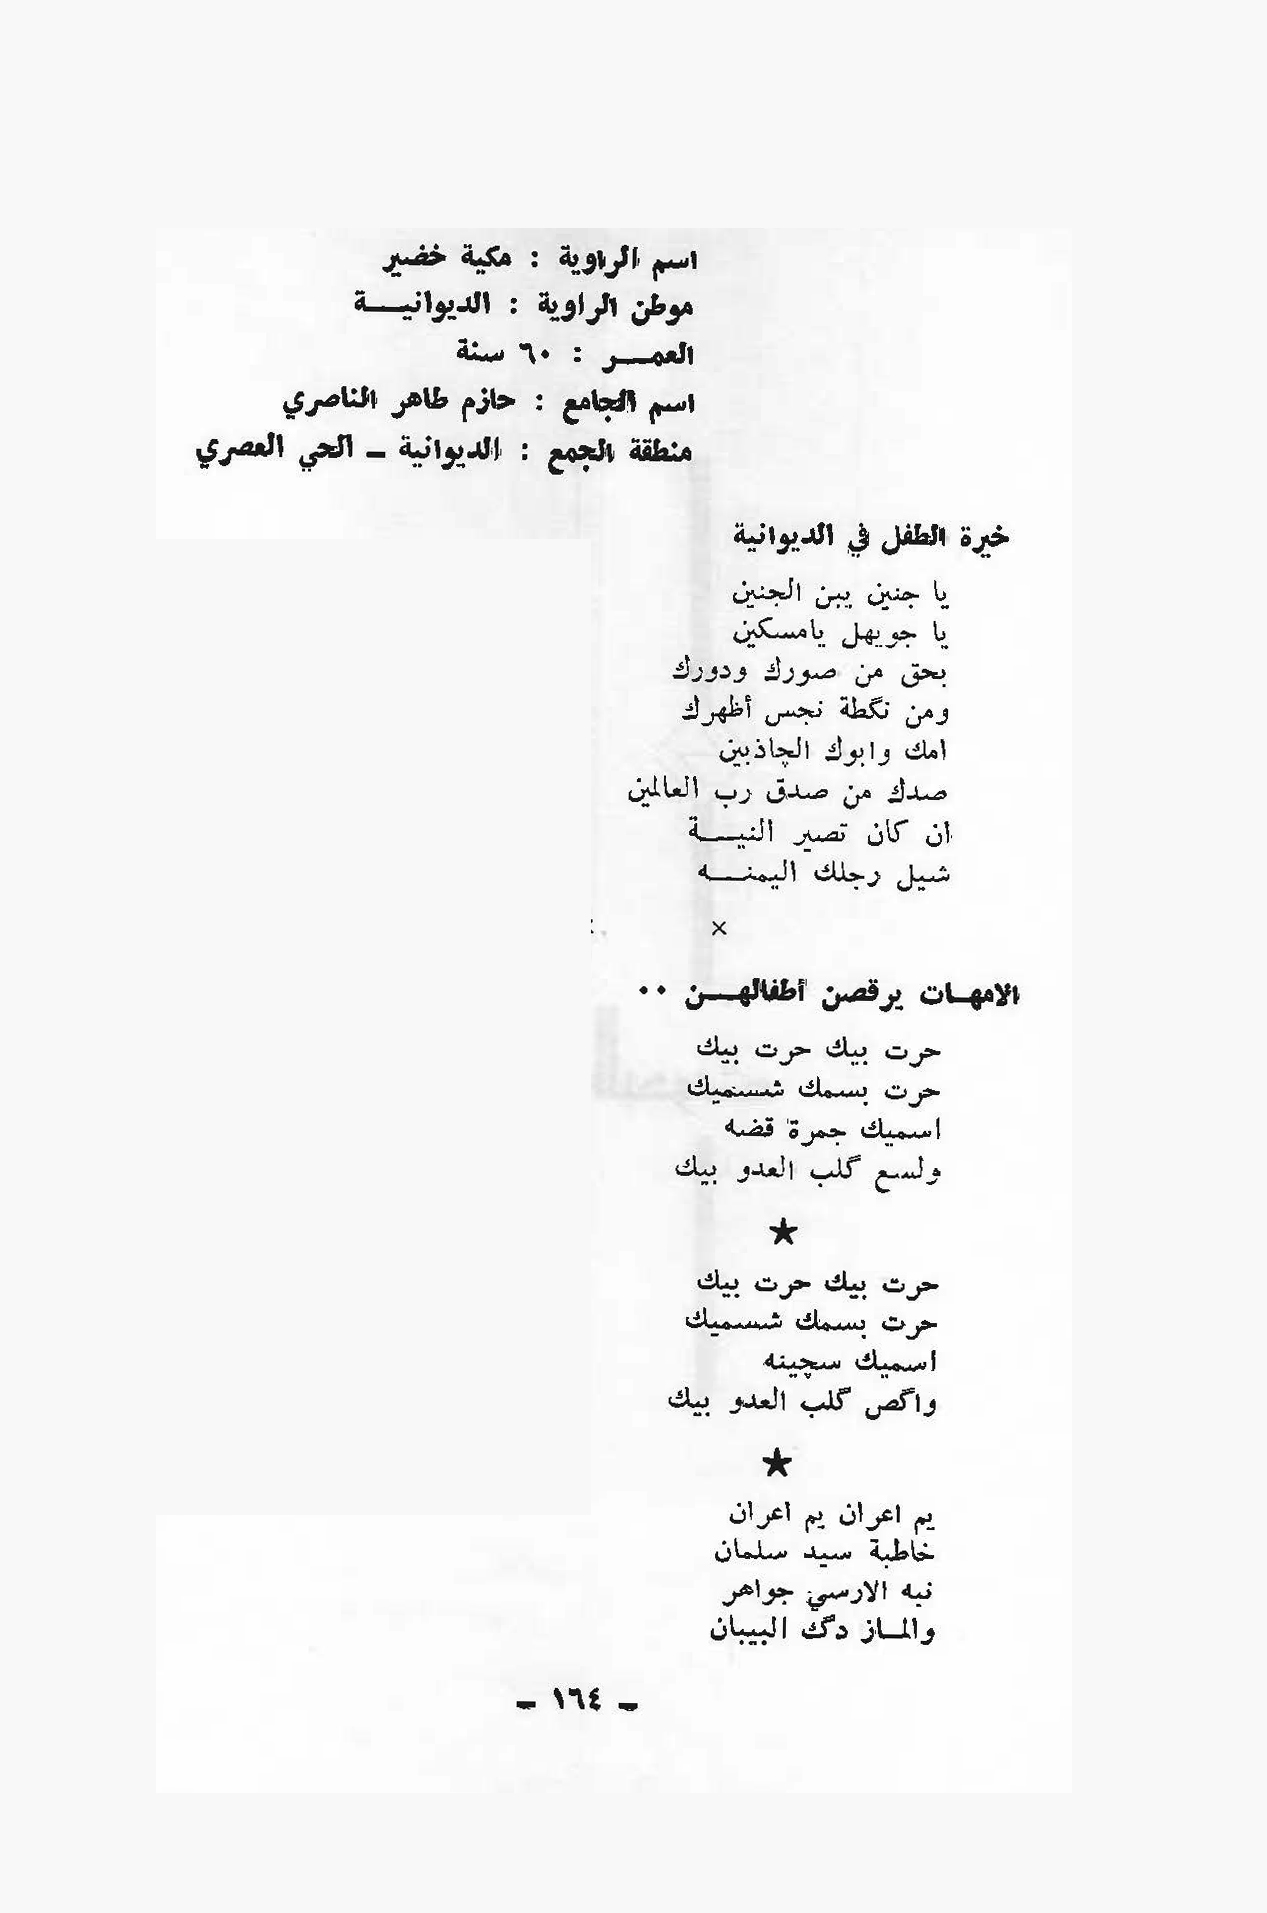 اسم الراوية : مكية خضير
موطن الراوية : الديوانيـــة
العمـــر : ٦٠ سنة
اسم الجامع : حازم طاهر الناصري
منطقة الجمع : الديوانية ــ الحي العصري
خيرة الطفل في الديوانية
يا جنين يبن الجنين
يا جويهل يامسكين
بحق من صورك ودورك
ومن نگطة نجس أظهرك
امك وابوك الچاذبين
صدك من صدق رب العالمين
ان كان تصير النيـــة
شيل رجلك اليمنـــه
×
الامهـات يرقصن أطفالهـــن ٠٠
حرت بيك حرت بيك
حرت بسمك شسميك
اسميك جمرة قضه
ولسع گلب العدو بيك
★
حرت بيك حرت بيك
حرت بسمك شسميك
اسميك سچينه
واگص گلب العدو بيك
★
يم اعران يم اعران
خاطبة سيد سلمان
نبه الارسي جواهر
والمـاز دگك البيبان
ــ ١٦٤ ــ